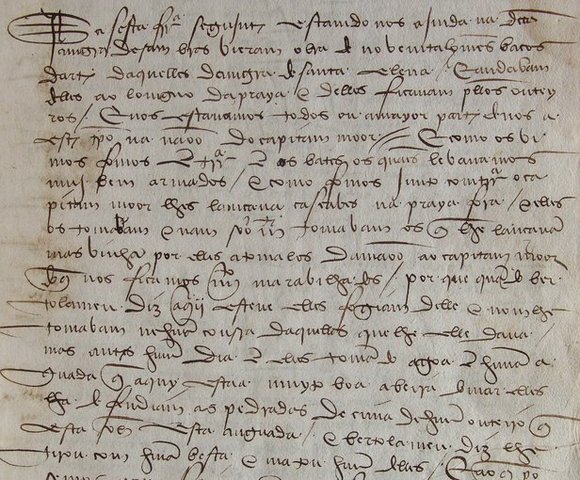 A sesta frª segujnte estando nos ajnda na dcta
amgra de sam bras vieram obra de noventa homeẽs baços
darte daquelles da mgra de santa elena / E andabam
delles ao longuo da praya e delles ficavam pllos outey
ros / E nos estavamos todos ou a mayor parte de nos a
este tpõ na naoo do capitam moor / E como os vi
mos fomos em trrª em os bates os quaes levavamos
muj bem armados / E como fomos junto com trrª o ca
pitam moor lhes lancava cascaves na praya fora / E elles
os tomavam e nam soo tomabam os q lhe lancavam
mas vinham por elles a tomalos da maão ao capitam moor
do q nos ficamos marabilhados / por que quando ber
tolameu diz aquj esteve elles fogiam delle e nom lhe
tomabam nehũa coussa daquellas que lhe elle dava
mas antes huum dia em elles tomando agoa em huma a
guada q aquy esta muyto boa a beira do mar elles
lha defendiam as pedradas de cima de huum outeiro q
esta sobre esta auguada / e bertolameu diz lhe
tirou com huma besta e matou huum delles /